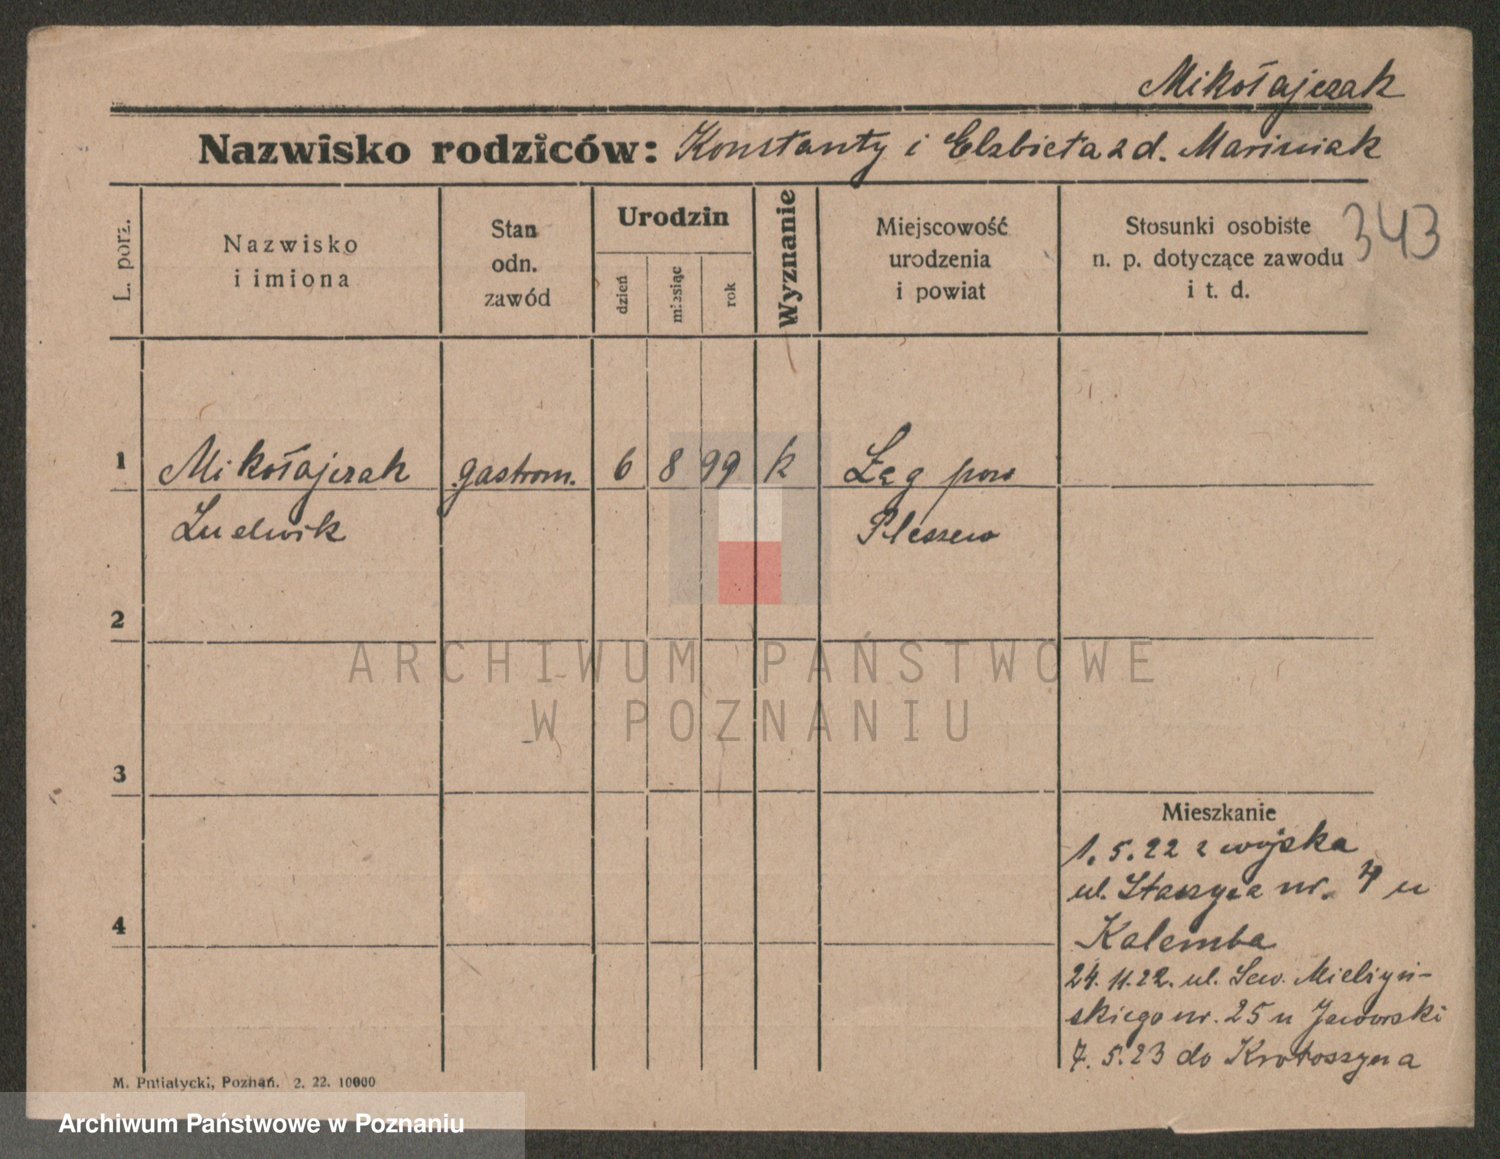 Mikołajczak
Nazwisko rodziców: Konstanty i Elzbieta z d. Mariniak
L. porz.
Nazwisko
i imiona
Stan
odn.
zawód
Urodzin
dzień
miesiąc
rok
Wyznanie
Miejscowość
urodzenia
i powiat
Stosunki osobiste
n. p. dotyczące zawodu
i t. d.
343
1 Mikołajczak gastrom. 6 8 99 k Łęg pow
Ludwik Pleszew
2
ARCHIWUM PAŃSTWOWE
W POZNANIU
3
Mieszkanie
1. 5. 22 z wojska
ul. Staszyca nr. 4 u
4
Kalemba
24. 11. 22. ul. Sew. Mielżyń-
skiego nr. 25 u Jaworski
7. 5. 23 do Krotoszyna
M. Putiatycki, Poznań. 2. 22. 10000
Archiwum Państwowe w Poznaniu